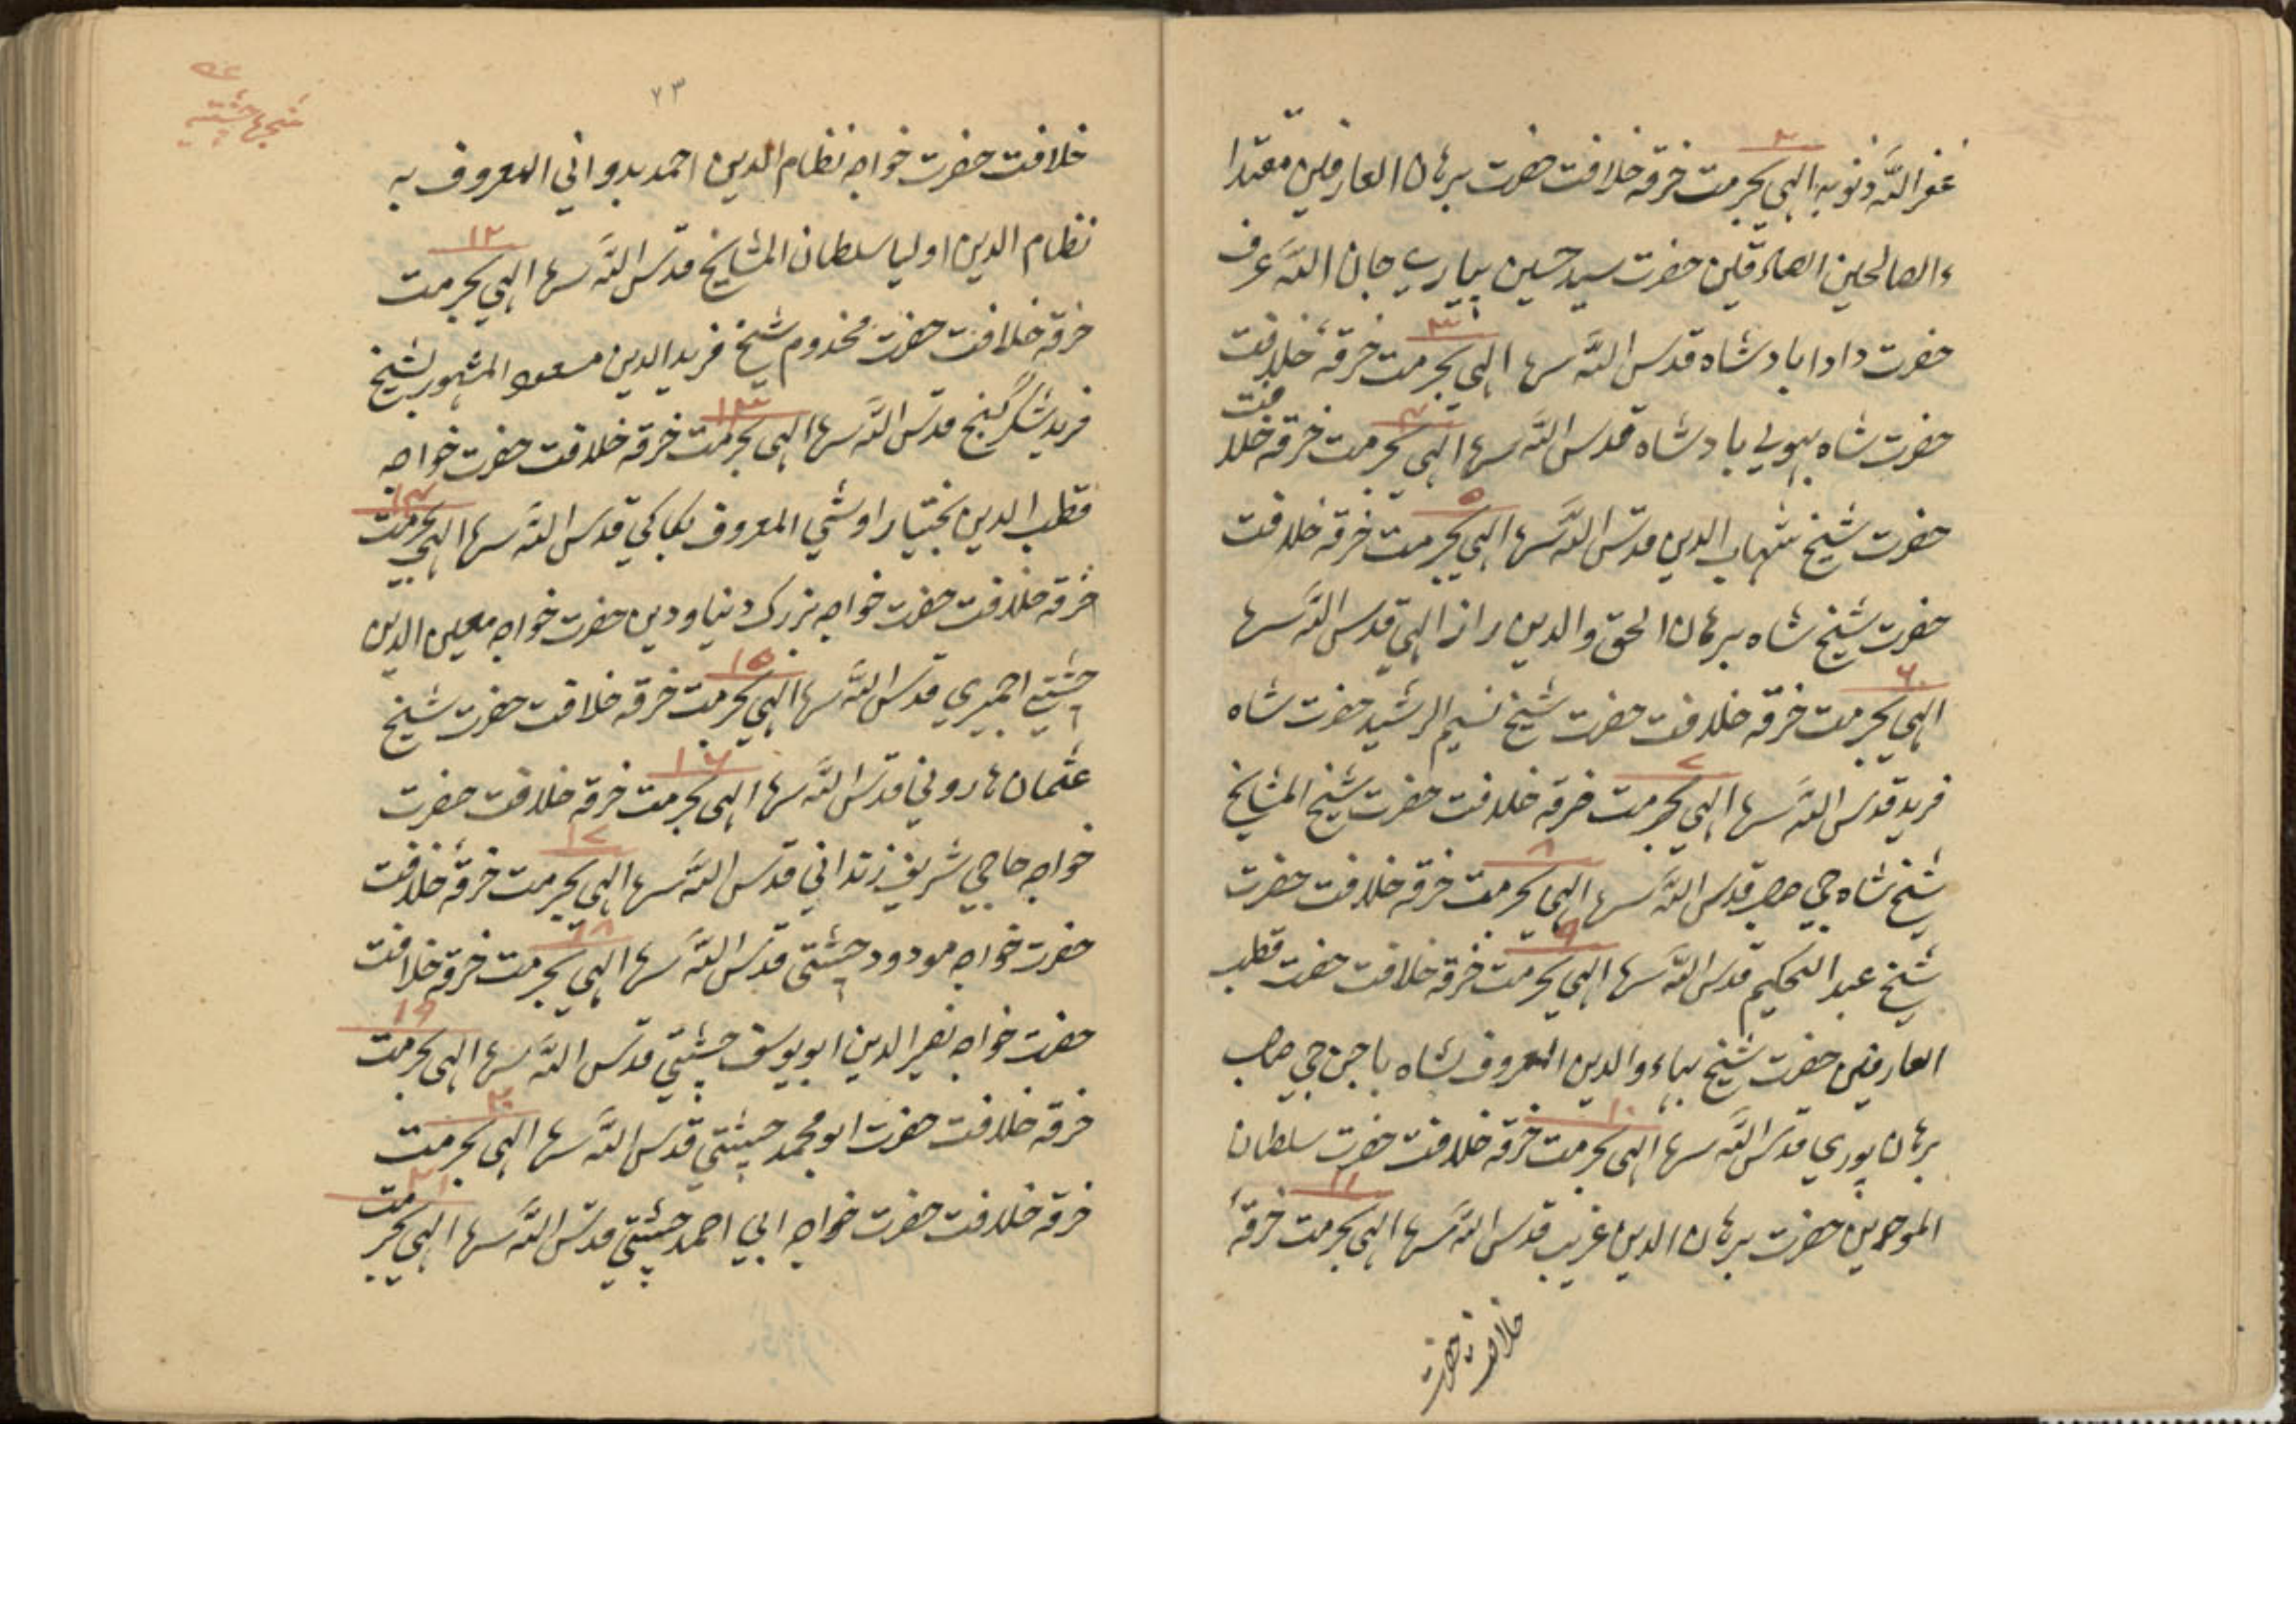 ۲
غفر الله ذنوبه الهي بحرمت خرقه خلافت حضرت برهان العارفين مقتدا
ء الصالحين الصادقين حضرت سيد حسين پيارے جان الله عرف
۳
حضرت دادا بادشاه قدس الله سرها الهي بحرمت خرقهٔ خلافت
۴
حضرت شاه بهولي بادشاه قدس الله سرها الهي بحرمت خرقه خلافت
۵
حضرت شيخ شهاب الدين قدس الله سرها الهي بحرمت خرقه خلافت
حضرت شيخ شاه برهان الحق والدين راز الهي قدس الله سرها
۶
الهي بحرمت خرقه خلافت حضرت شيخ نسيم الرشيد حضرت شاه
۷
فريد قدس الله سرها الهي بحرمت خرقه خلافت حضرت شيخ المشايخ
۸
شيخ شاه جي صاحب قدس الله سرها الهي بحرمت خرقه خلافت حضرت
۹
شيخ عبد الحكيم قدس الله سرها الهي بحرمت خرقه خلافت حضرت قطب
العارفين حضرت شيخ بهاء والدين المعروف بشاه باجن جي صاحب
۱۰
برهان پوري قدس الله سرها الهي بحرمت خرقه خلافت حضرت سلطان
۱۱
الموحدين حضرت برهان الدين غريب قدس الله سرها الهي بحرمت خرقهٔ
خلافت حضرت
۷۳
شجرهٔ چشتيه
خلافت حضرت خواجه نظام الدين احمد بدواني المعروف به
۱۲
نظام الدين اوليا سلطان المشايخ قدس الله سرها الهي بحرمت
خرقه خلافت حضرت مخدوم شيخ فريد الدين مسعود المشهور بشيخ
۱۳
فريد شكر گنج قدس الله سرها الهي بحرمت خرقه خلافت حضرت خواجه
۱۴
قطب الدين بختيار اوشي المعروف بكاكي قدس الله سرها الهي بحرمت
خرقه خلافت حضرت خواجه بزرك دنيا ودين حضرت خواجه معين الدين
۱۵
چشتي اجميري قدس الله سرها الهي بحرمت خرقه خلافت حضرت شيخ
۱۶
عثمان هاروني قدس الله سرها الهي بحرمت خرقه خلافت حضرت
۱۷
خواجه حاجي شريف زنداني قدس الله سرها الهي بحرمت خرقهٔ خلافت
۱۸
حضرت خواجه مودود چشتي قدس الله سرها الهي بحرمت خرقه خلافت
۱۹
حضرت خواجه نصير الدين ابو يوسف چشتي قدس الله سرها الهي بحرمت
۲۰
خرقه خلافت حضرت ابو محمد چشتي قدس الله سرها الهي بحرمت
۲۱
خرقه خلافت حضرت خواجه ابي احمد چشتي قدس الله سرها الهي بحرمت